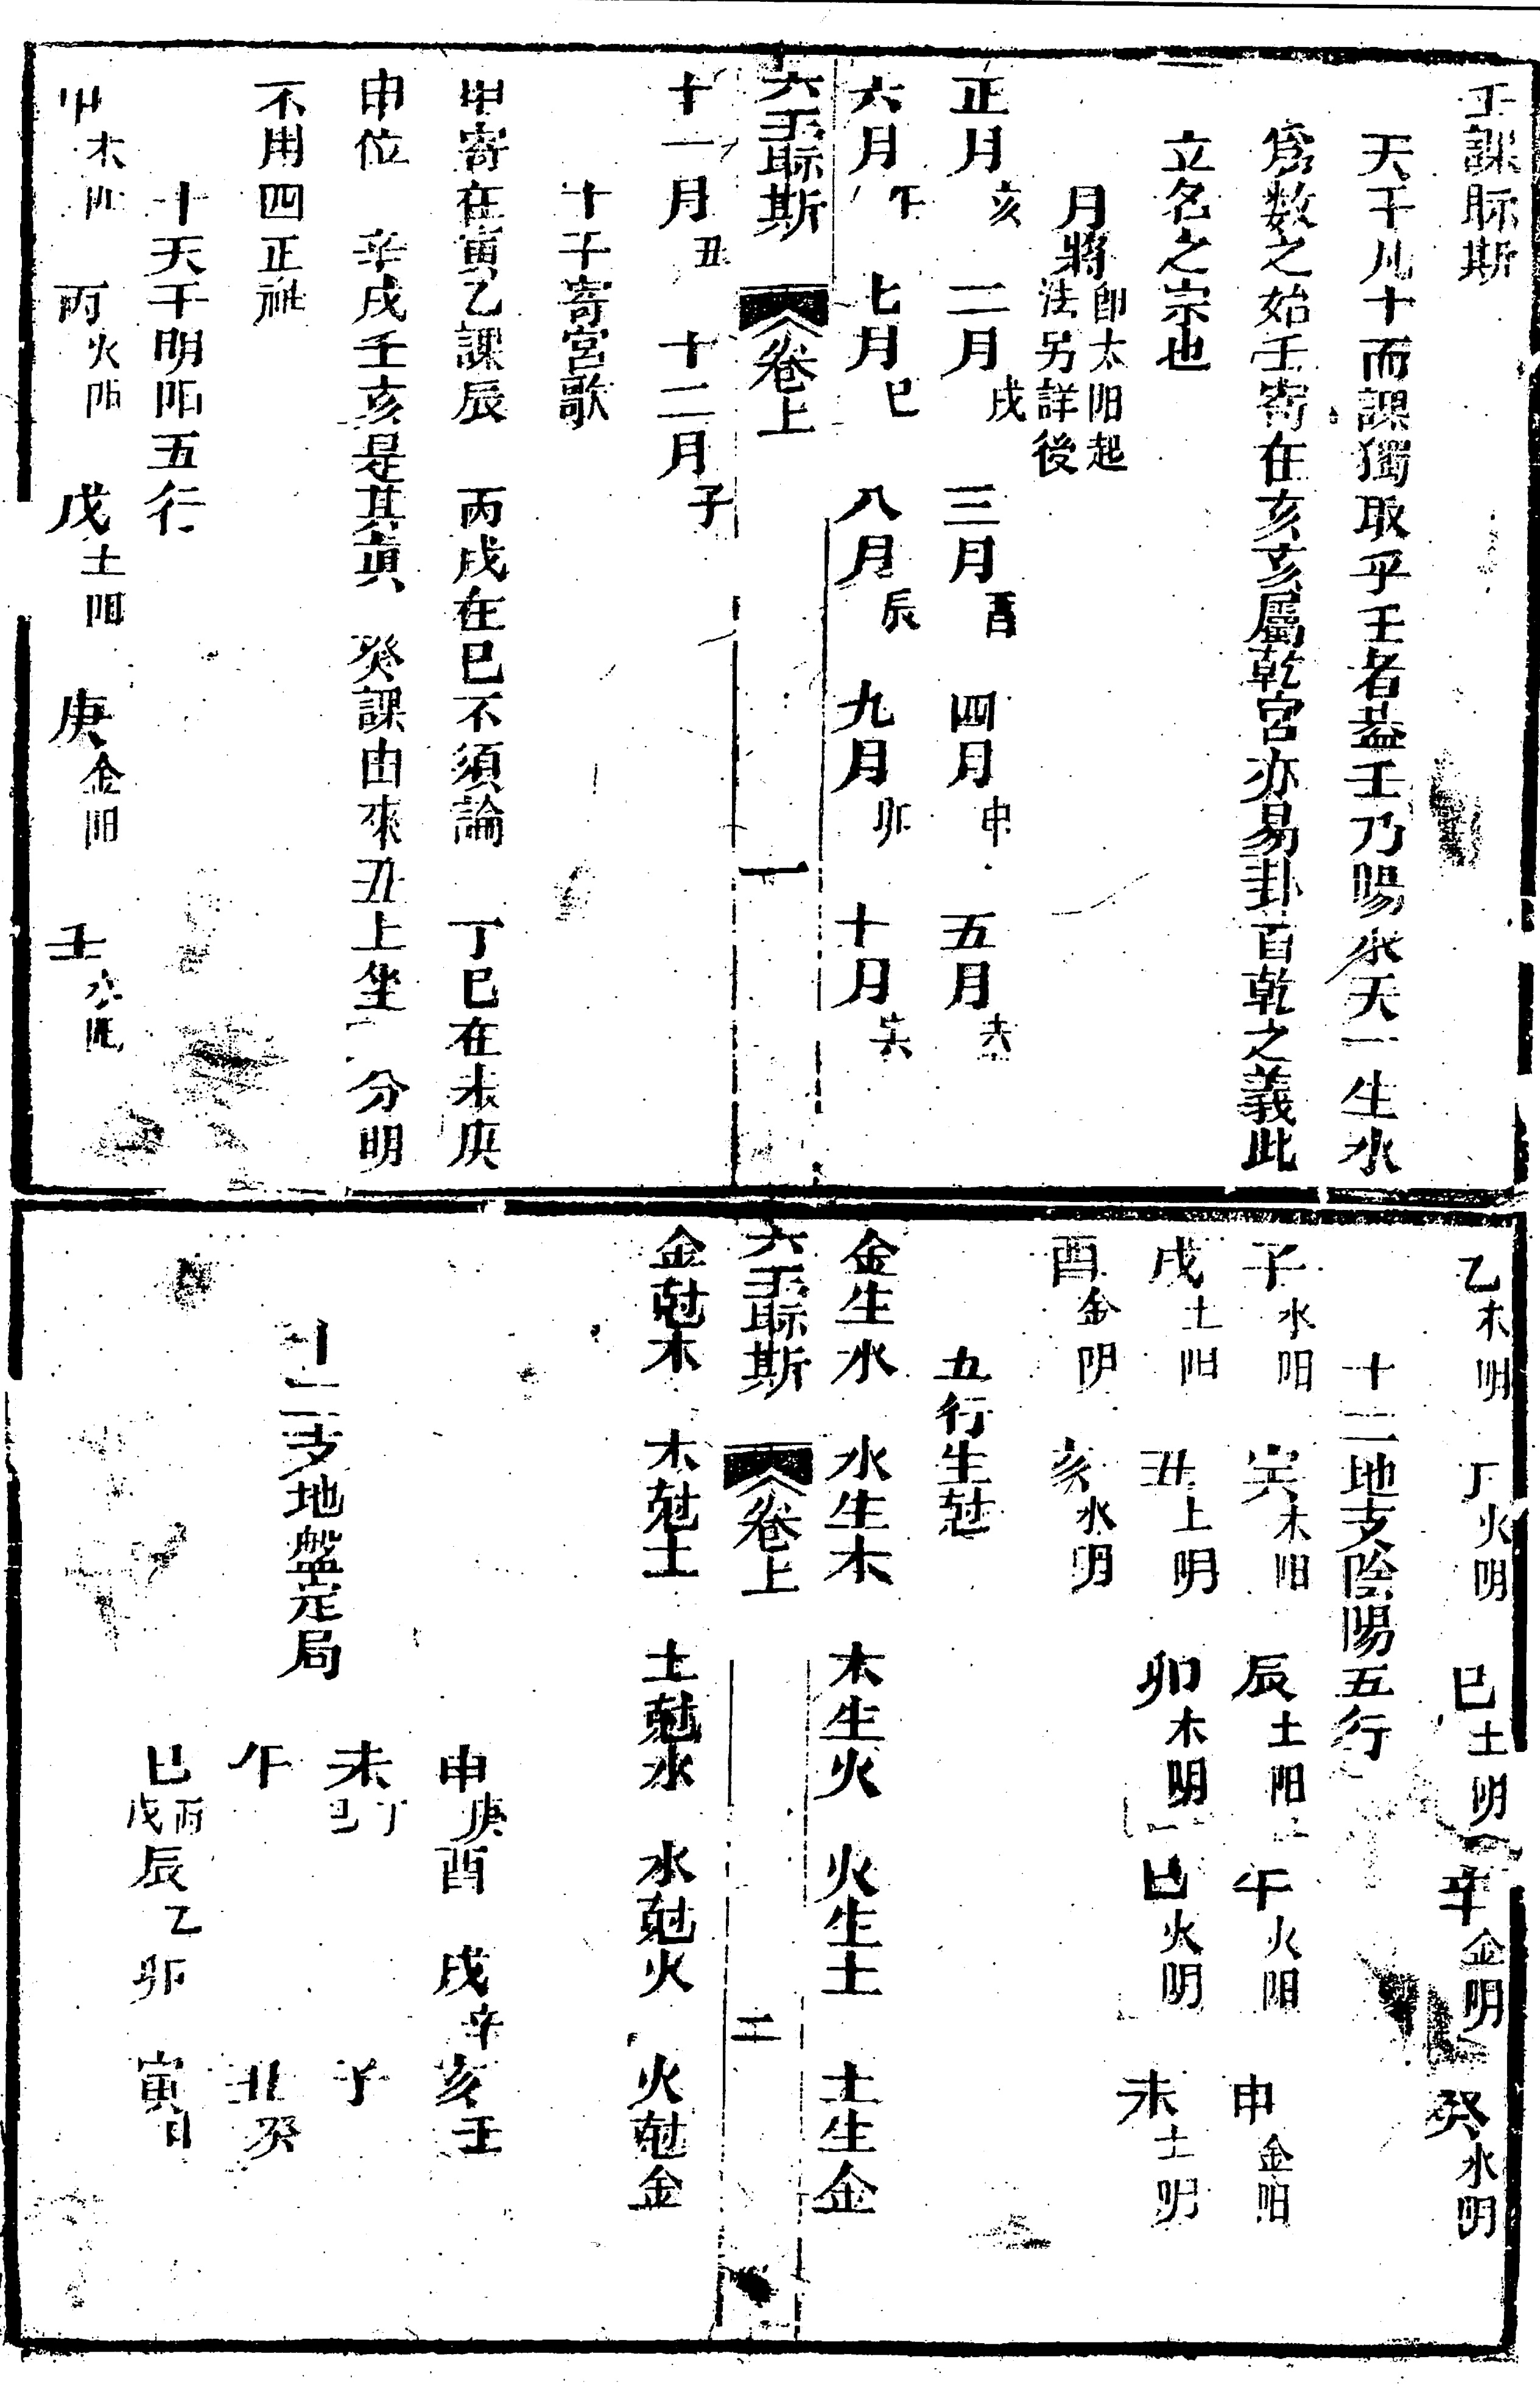 壬課眎斯
天干凡十而課獨取乎壬者葢壬乃陽水天一生水
爲數之始壬寄在亥亥屬乾宮亦易卦首乾之義此
立名之宗也
月將 卽太阳起法另詳後
正月亥 二月戌 三月酉 四月申 五月未
六月午 七月巳 八月辰 九月卯 十月寅
六壬眎斯 卷上 一
十一月丑 十二月子
十干寄宮歌
甲寄在寅乙課辰 丙戊在巳不須論 丁巳在未庚
申位 辛戌壬亥是其眞 癸課由來丑上坐 分明
不用四正神
十天干明阳五行
甲木阳 丙火阳 戊土阳 庚金阳 壬水阳
乙木阴 丁火阴 巳土阴 辛金阴 癸水阴
十二地支陰陽五行
子水阳 寅木阳 辰土阳 午火阳 申金阳
戌土阳 丑土阴 卯木阴 巳火阴 未土阴
酉金阴 亥水阴
五行生尅
金生水 水生木 木生火 火生土 土生金
六壬眎斯 卷上 二
金尅木 木尅土 土尅水 水尅火 火尅金
申庚 酉 戌辛 亥壬
未丁巳 子
十二支地盤定局
午 丑癸
巳丙戊 辰乙 卯 寅甲